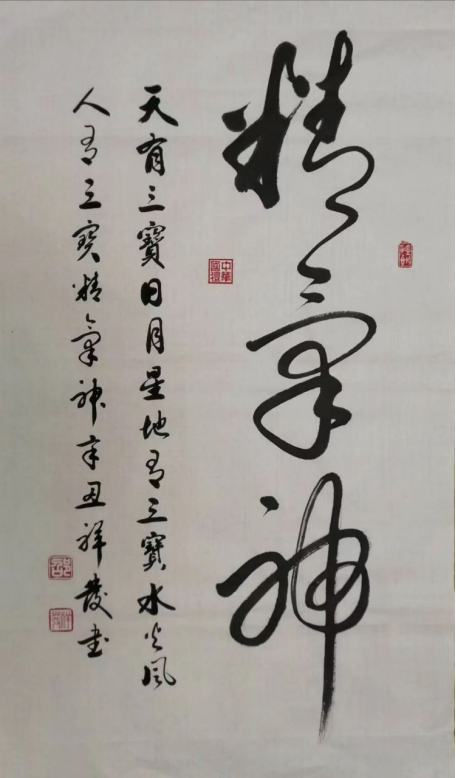 精氣神
天有三寶日月星地有三寶水火風
人有三寶精氣神辛丑祥發書
中華